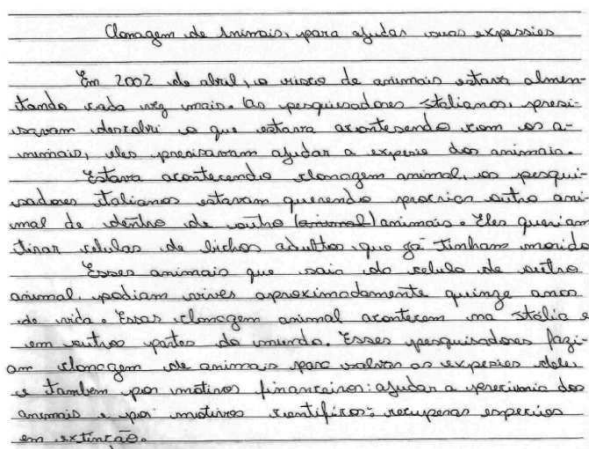 Clonagem de Animais, para ajudar suas expessies
Em 2002 de abril, o risco de animais estava almen-
tando cada vez mais. Os pesquisadores Italianos, presi-
savam descobri o que estava acontesendo com os a-
nimais, eles precisavam ajudar a experie dos animais.
Estava acontecendo clonagem animal, os pesqui-
sadores italianos estavam querendo procria outro ani-
mal de dentro de outro (animal) animais. Eles queriam
tirar celulas de bichos adultos que já tinham morido
Esses animais que sais da celula de outro
animal, podiam vives aproximadamente quinze anos
de vida. Essas clonagem animal acontecem na Itália e
em outros partes do mundo. Esses pesquisadores fazi-
am clonagem de animais para salvar as expesies deles
e tambem por motivos financeiros: ajudar a
dos
animais e por motivos cientificos: recuperas especies
em extinção.